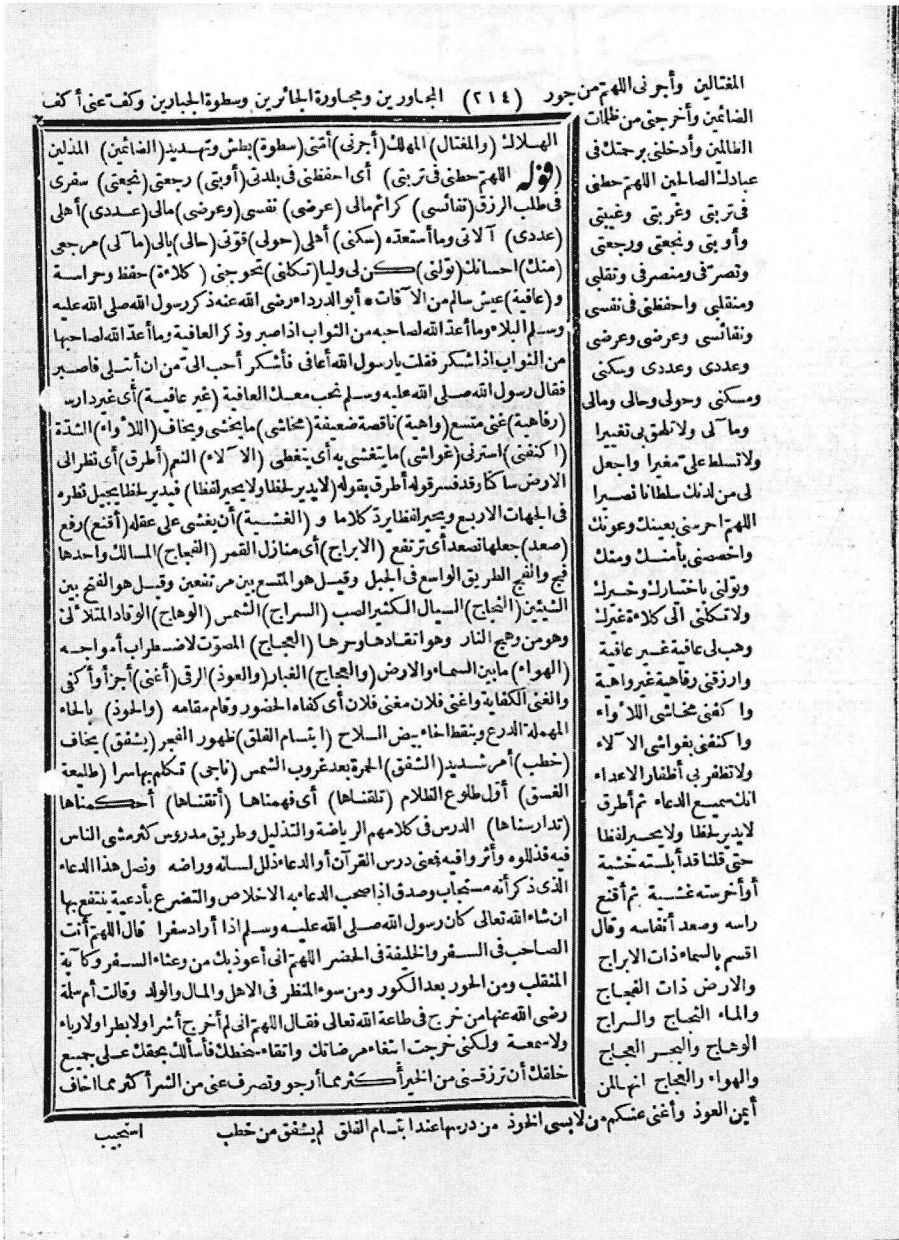 المغتالين وأجرنى اللهم من جور (٢١٤) المجاورين ومجاورة الجائرين وسطوة الجبارين وكف عنى أكف
الضائمين وأخرجنى من ظلمات
الظالمين وأدخلنى برحمتك فى
عبادك الصالحين اللهم حطنى
فى تربتى وغربتى وغيبتى
وأوبتى ونجعتى ورجعتى
وتصرفى ومنصرفى وتقلبى
ومنقلبى واحفظنى فى نفسى
ونفائسى وعرضى وعرضى
وعددى وعددى وسكنى
ومسكنى وحولى وحالى ومالى
وما آلى ولا تلحق بى تغييرا
ولا تسلط على مغيرا واجعل
لى من لدنك سلطانا نصيرا
اللهم احرسنى بعينك وعونك
واخصصنى بأمنك ومنك
وتولنى باختيارك وخيرك
ولا تكلنى الى كلاءة غيرك
وهب لى عافية غير عافية
وارزقنى رفاهية غير واهية
واكفنى مخاشى اللأواء
واكنفنى بغواشى الآلاء
ولا تظفر بى أظفار الاعداء
انك سميع الدعاء ثم أطرق
لا يدير لحظا ولا يحير لفظا
حتى قلنا قد أبلسته خشية
أو أخرسته غشية ثم أقنع
راسه وصعد أنفاسه وقال
اقسم بالسماء ذات الابراج
والارض ذات الفجاج
والماء الثجاج والسراج
الوهاج والبحر العجاج
والهواء والعجاج انها لمن
أيمن العوذ وأغنى عنكم من لابسى الخوذ من درسها عند ابتسام الفلق لم يشفق من خطب
استجيب
الهلاك (والمغتال) المهلك (أجرنى) أمنى (سطوة) بطش وتهديد (الضائمين) المذلين
(قوله اللهم حطنى فى تربتى) أى احفظنى فى بلدتى (أوبتى) رجعتى (نجعتى) سفرى
فى طلب الرزق (نفائسى) كرائم مالى (عرضى) نفسى (وعرضى) مالى (عددى) أهلى
(عددى) آلاتى وما أستعده (سكنى) أهلى (حولى) قوتى (حالى) بالى (ما آلى) مرجعى
(منك) احسانك (تولنى) كن لى وليا (تكلنى) تحوجنى (كلاءة) حفظ وحراسة
و (عافية) عيش سالم من الآفات * أبو الدرداء رضى الله عنه ذكر رسول الله صلى الله عليه
وسلم البلاء وما أعد الله لصاحبه من الثواب اذا صبر وذكر العافية وما أعد الله لصاحبها
من الثواب اذا شكر فقلت يارسول الله أعافى فأشكر أحب الى من ان أبتلى فاصبر
فقال رسول الله صلى الله عليه وسلم نحب معك العافية (غير عافية) أى غير دارسة
(رفاهية) غنى متسع (واهية) ناقصة ضعيفة (مخاشى) ما يخشى ويخاف (اللأواء) الشدة
(اكنفنى) استرنى (غواشى) ما يتغشى به أى يتغطى (الآلاء) النعم (أطرق) أى نظر الى
الارض ساكتا وقد فسر قوله أطرق بقوله (لا يدير لحظا ولا يحير لفظا) فيدير لحظا يجيل نظره
فى الجهات الاربع ويحير لفظا يرد كلاما و (الغشية) أن يغشى على عقله (أقنع) رفع
(صعد) جعلها تصعد أى ترتفع (الابراج) أى منازل القمر (الفجاج) المسالك واحدها
فج والفج الطريق الواسع فى الجبل وقيل هو المتسع بين مرتفعين وقيل هو الفتح بين
الشيئين (الثجاج) السيال الكثير الصب (السراج) الشمس (الوهاج) الوقاد المتلألئ
وهو من وهيج النار وهو اتقادها وحرها (العجاج) المصوت لاضطراب أمواجه
(الهواء) ما بين السماء والارض (والعجاج) الغبار (والعوذ) الرقى (أغنى) أجزأ وأكفى
والغنى الكفاية واغنى فلان مغنى فلان أى كفاه الحضور وقام مقامه (والحوذ) بالحاء
المهملة الدرع وبنقطها خاء بيض السلاح (ابتسام الفلق) ظهور الفجر (يشفق) يخاف
(خطب) أمر شديد (الشفق) الحمرة بعد غروب الشمس (ناجى) تكلم بها سرا (طليعة
الغسق) أول طلوع الظلام (تلقناها) أى فهمناها (أتقناها) أحكمناها
(تدارسناها) الدرس فى كلامهم الرياضة والتذليل وطريق مدروس كثر مشى الناس
فيه فذللوه وأثروا فيه فمعنى درس القرآن أو الدعاء ذلل لسانه وراضه ونصل هذا الدعاء
الذى ذكر أنه مستجاب وصدق اذا صحب الدعاء به الاخلاص والتضرع بأدعية ينتفع بها
ان شاء الله تعالى كان رسول الله صلى الله عليه وسلم اذا أراد سفرا قال اللهم أنت
الصاحب فى السفر والخليفة فى الحضر اللهم انى أعوذ بك من وعثاء السفر وكآبة
المنقلب ومن الحور بعد الكور ومن سوء المنظر فى الاهل والمال والولد وقالت أم سلمة
رضى الله عنها من خرج فى طاعة الله تعالى فقال اللهم انى لم أخرج أشرا ولا بطرا ولا رياء
ولا سمعة ولكنى خرجت ابتغاء مرضاتك واتقاء سخطك فأسألك بحقك على جميع
خلقك أن ترزقنى من الخير أكثر مما أرجو وتصرف عنى من الشر أكثر مما أخاف